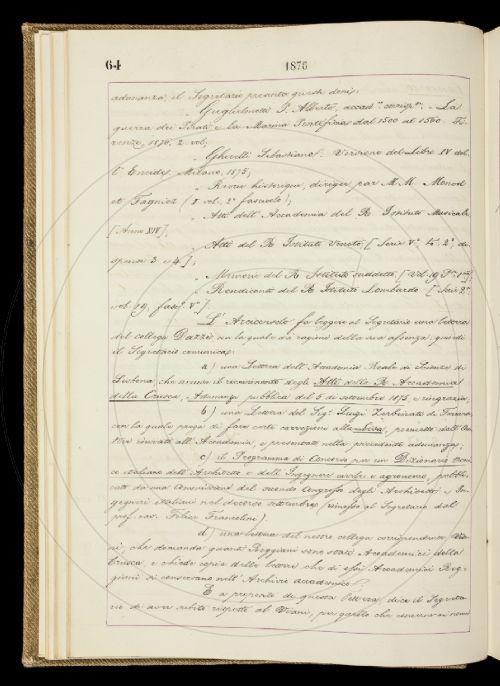 64
1876
adunanza, il Segretario presenta questi doni:
Guglielmotti P. Alberto, accad.º corrisp.te - La
guerra dei Pirati e la Marina Pontificia dal 1500 al 1560. Fi-
renze, 1876. 2 vol;
Ghivelli Sebastiano. Versione del Libro IV del-
l'Eneide, Milano, 1875;
Revue historique, dirigée par M. M. Monod
et Fagniez (I vol. 2º fascicolo);
Atti dell'Accademia del R. Istituto Musicale
[Anno XIV];
Atti del R. Istituto Veneto [Serie Vª T. 2º, di-
spensa 3 e 4];
Memorie del R. Istituto suddetto, [Vol. 19
Rendiconti del R. Istituto Lombardo [Serie 2ª
vol. 09, fasc.º Vº]
L'Arciconsolo fa leggere al Segretario una lettera
del collega Dazzi, in la quale dà ragione della sua assenza: quindi
il Segretario comunica:
a) una Lettera dell'Accademia Reale di Scienze di
Lisbona, che accusa il ricevimento degli Atti della R. Accademia
della Crusca, Adunanza pubblica del 5 di settembre 1875, e ringrazia;
b) una Lettera del Sig.r Luigi
con la quale prega di fare certe correzioni alla premessa dall'
inviata all'Accademia, e presentata nella precedente adunanza;
c) il Programma di Concorso per un Dizionario
italiano dell'Architetto e dell'Ingegnere civile e agronomo, pubbli-
cato da una Commissione del secondo Congresso degli Architetti e In-
gegneri italiani nel decorso settembre (rimesso al Segretario dal
prof. cav. Felice Francolini).
d) una lettera del nostro collega corrispondente Via-
ni, che domanda quanti Reggiani sono stati Accademici della
Crusca, e chiede copia delle lettere che di essi Accademici Reg-
giani si conservano nell'Archivio accademico.
E a proposito di questa lettera, dice il Segreta-
rio di aver subito risposto al Viani, per quello che